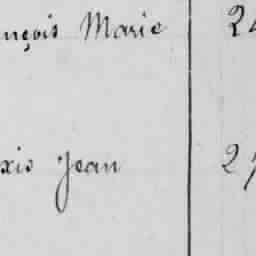 nçois Marie 2
xis Jean 27